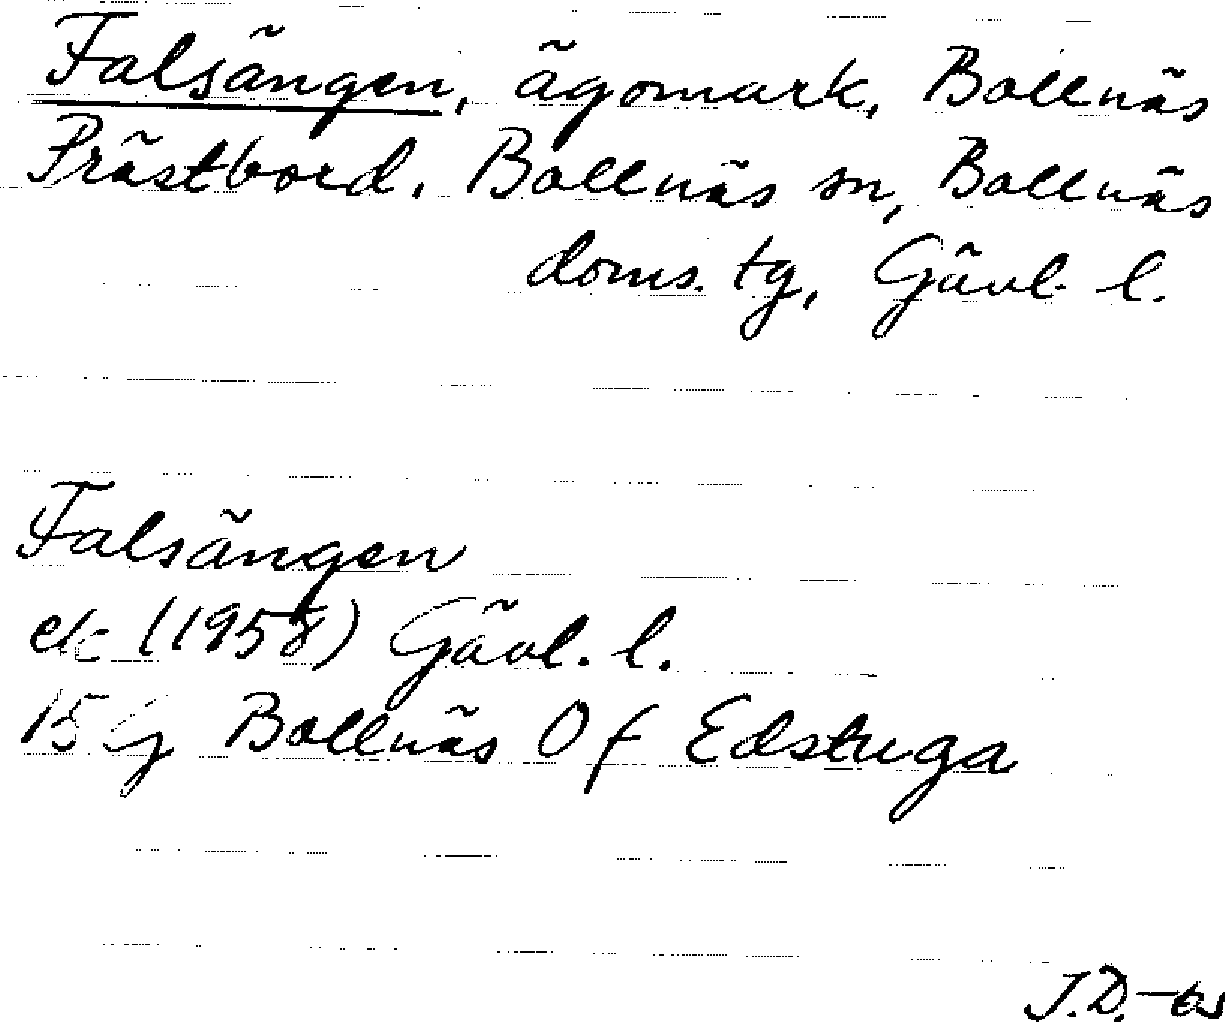 Falsängen, ägomark, Bollnäs
Prästbord. Bollnäs sn, Bollnäs
doms. tg, Gävl. l.
Falsängen
ek (1958) Gävl. l.
15 g Bollnäs Of Edstuga
J.D.